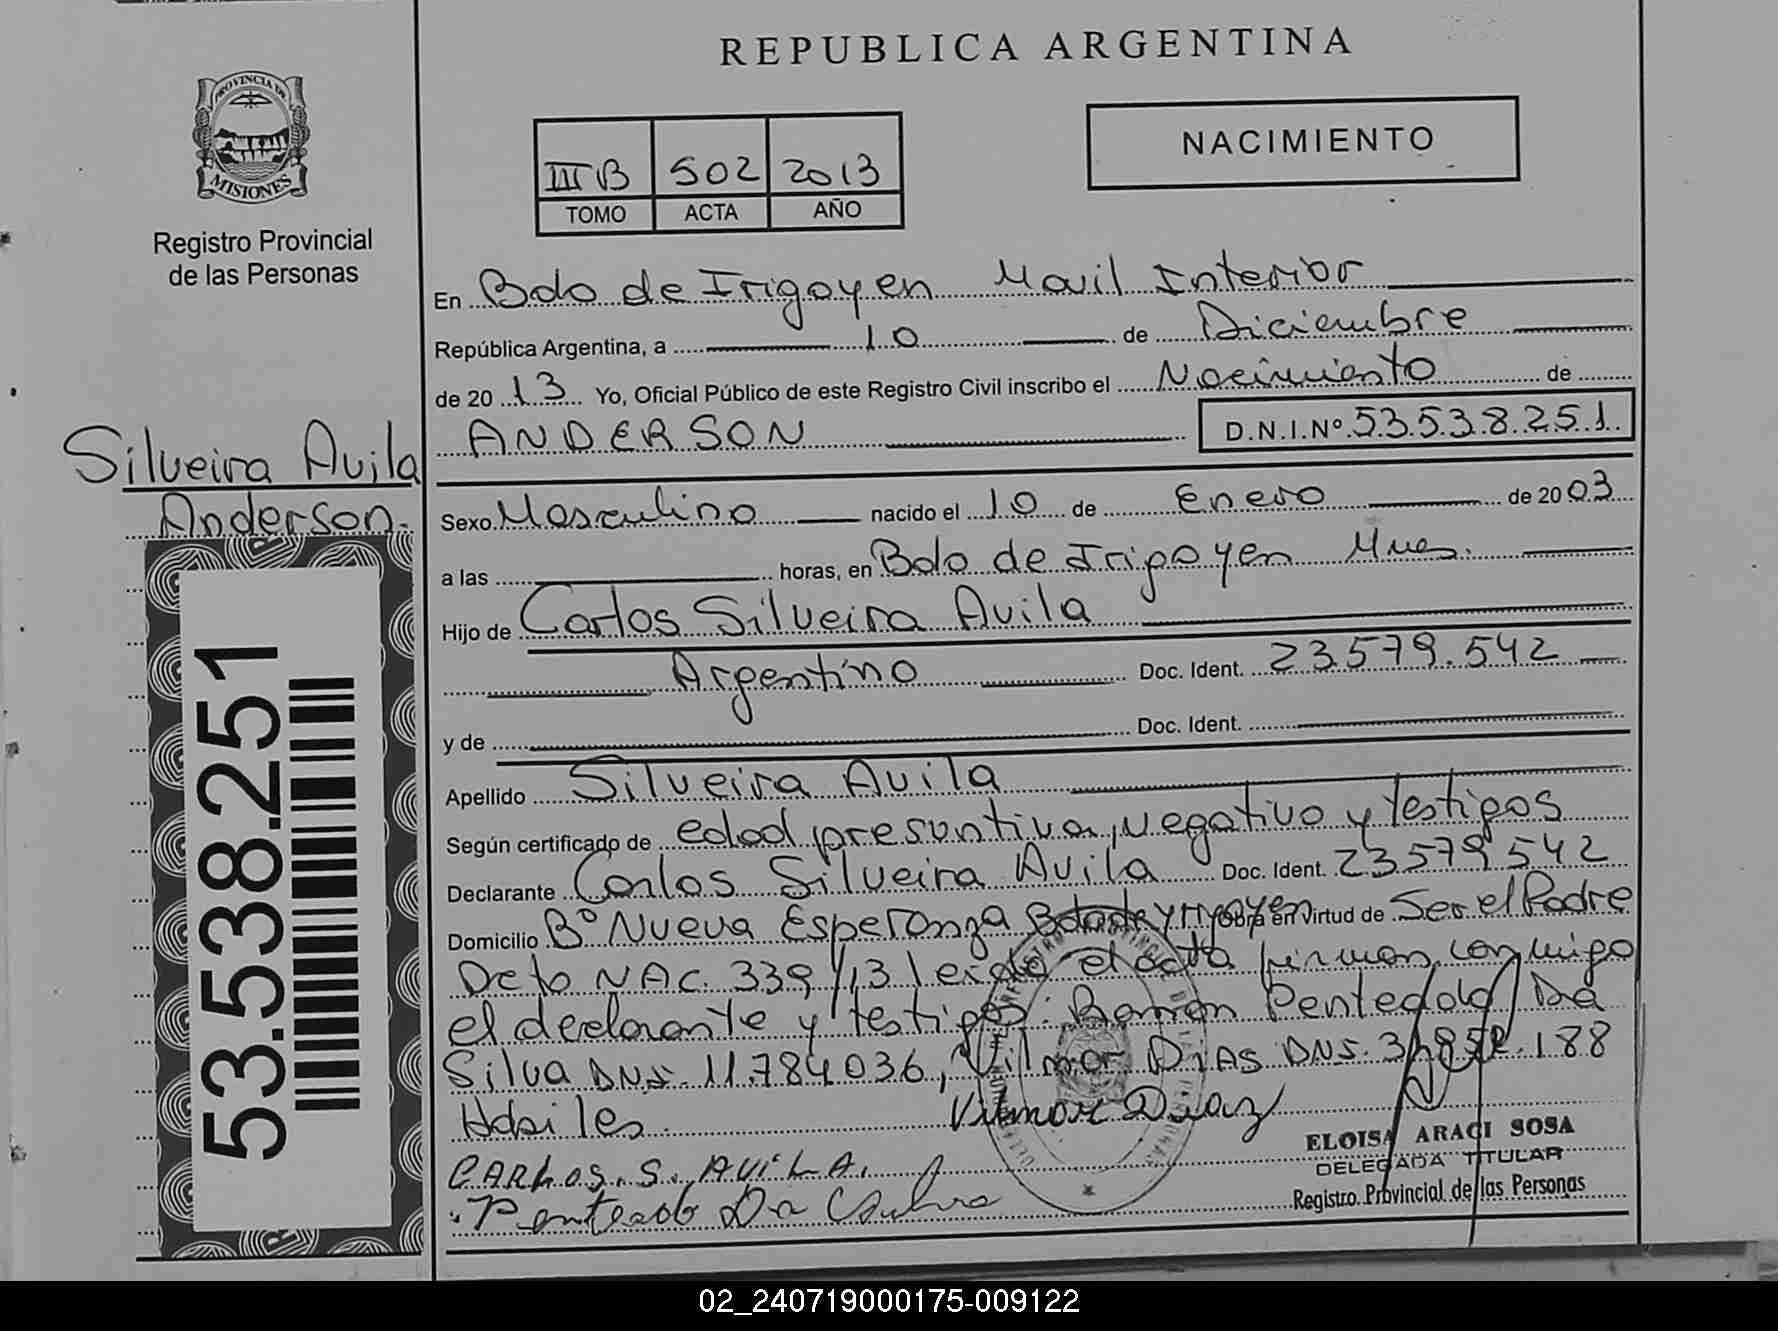 REPUBLICA ARGENTINA
PROVINCIA DE
MISIONES
Registro Provincial
de las Personas
III B 502 2013
TOMO ACTA AÑO
NACIMIENTO
En Bdo de Irigoyen Movil Interior
República Argentina, a 10 de Diciembre
de 2013 Yo, Oficial Público de este Registro Civil inscribo el Nacimiento de
ANDERSON D.N.I.Nº 53.538.251
Silveira Avila
Anderson.
53.538.251
Sexo Masculino nacido el 10 de Enero de 2003
a las horas, en Bdo de Irigoyen Mnes.
Hijo de Carlos Silveira Avila
Argentino Doc. Ident. 23.579.542
y de Doc. Ident.
Apellido Silveira Avila
Según certificado de edad presuntiva, negativo y testigos
Declarante Carlos Silveira Avila Doc. Ident. 23.579.542
Domicilio Bº Nueva Esperanza Bdo de Yrigoyen Obra en Virtud de Ser el Padre
Dcto NAC. 339/13 leida el acta firman conmigo
el declarante y testigos: Ramon Pentedo Da
Silva DNI. 11.784.036, Vilmar DIAS DNI. 188
Habiles
Vilmar Diaz
CARLOS. S. AVILA.
Penteado Da
ELOISA ARACI SOSA
DELEGADA TITULAR
Registro Provincial de las Personas
02_240719000175-009122